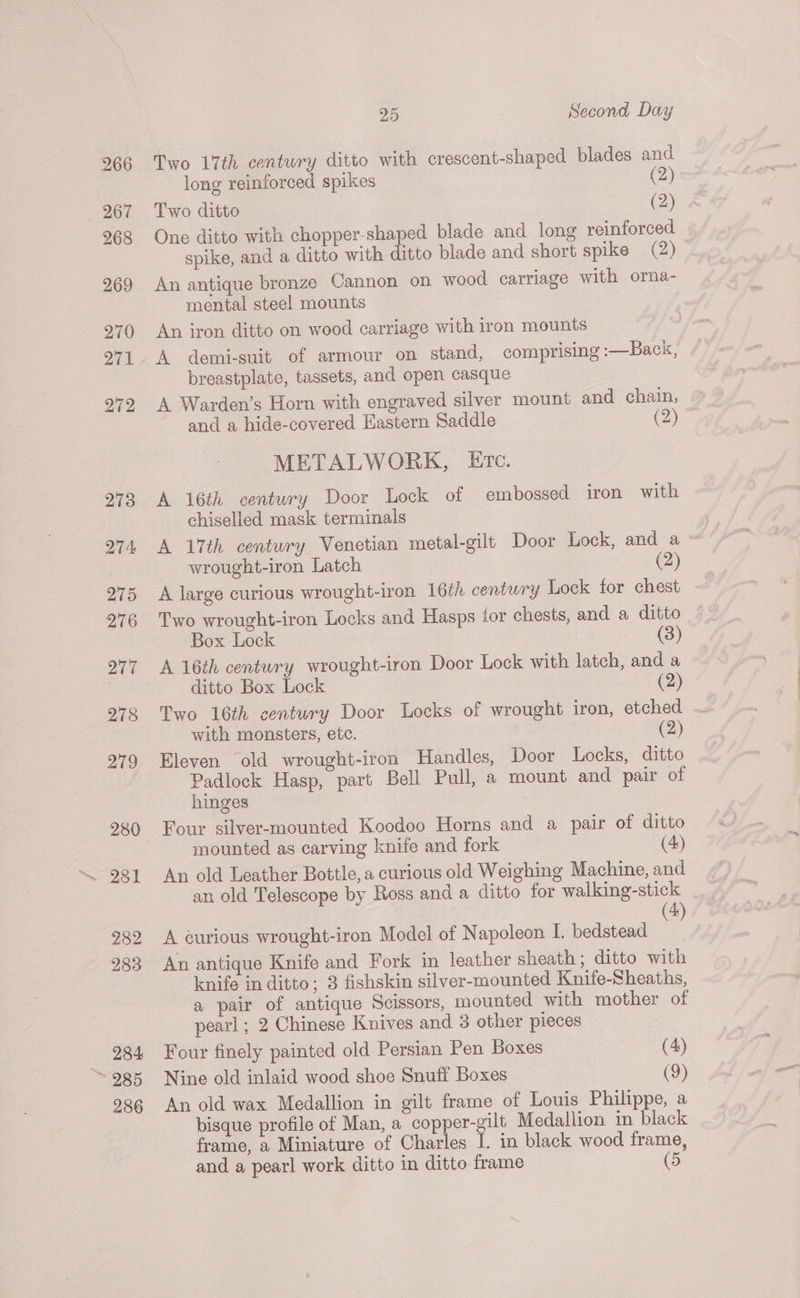 25 Second Day
266 Two 17th century ditto with crescent-shaped blades and
long reinforced spikes (2)
267 Two ditto (2)
268 One ditto with chopper-shaped blade and long reinforced
spike, and a ditto with ditto blade and short spike (2)
269 An antique bronze Cannon on wood carriage with orna-
mental steel mounts
270 An iron ditto on wood carriage with iron mounts
271 A demi-suit of armour on stand, comprising:—Back,
breastplate, tassets, and open casque
272 A Warden's Horn with engraved silver mount and chain,
and a hide-covered Eastern Saddle (2)
METALWORK, Etc.
273 A 16th century Door Lock of embossed iron with
chiselled mask terminals
274 A 17th century Venetian metal-gilt Door Lock, and a
wrought-iron Latch (2)
275 A large curious wrought-iron 16th century Lock for chest
276 Two wrought-iron Locks and Hasps for chests, and a ditto
Box Lock (3)
277 A 16th century wrought-iron Door Lock with latch, and a
ditto Box Lock (2)
278 Two 16th century Door Locks of wrought iron, etched
with monsters, etc. (2)
279 Eleven old wrought-iron Handles, Door Locks, ditto
Padlock Hasp, part Bell Pull, a mount and pair of
hinges
280 Four silver-mounted Koodoo Horns and a pair of ditto
mounted as carving knife and fork (4)
281 An old Leather Bottle, a curious old Weighing Machine, and
an old Telescope by Ross and a ditto for walking-stick
(4)
282 A curious wrought-iron Model of Napoleon I. bedstead
283 An antique Knife and Fork in leather sheath; ditto with
knife in ditto; 3 fishskin silver-mounted Knife-Sheaths,
a pair of antique Scissors, mounted with mother of
pearl; 2 Chinese Knives and 3 other pieces
284 Four finely painted old Persian Pen Boxes (4)
285 Nine old inlaid wood shoe Snuff Boxes (9)
286 An old wax Medallion in gilt frame of Louis Philippe, a
bisque profile of Man, a copper-gilt Medallion in black
frame, a Miniature of Charles I. in black wood frame,
and a pearl work ditto in ditto frame (5